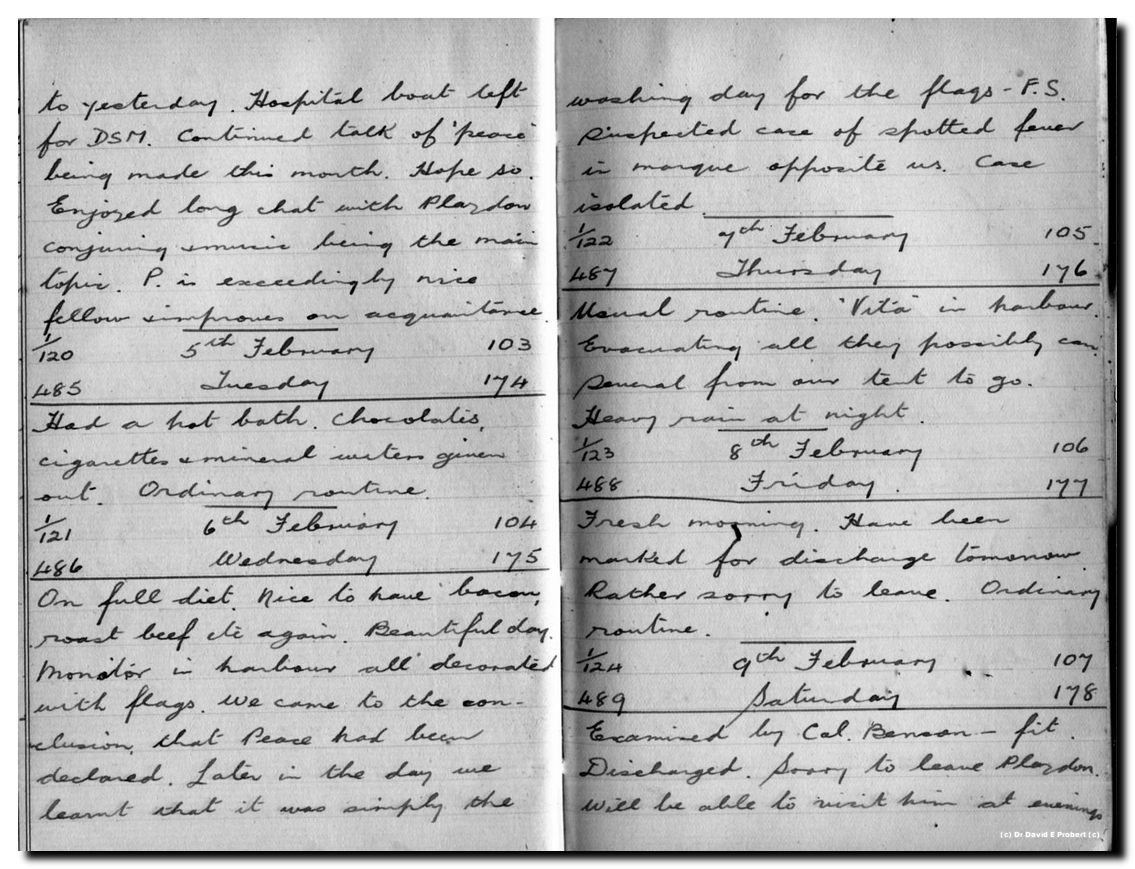 to yesterday. Hospital boat left
for DSM. Continued talk of 'peace'
being made this month. Hope so.
Enjoyed long chat with Playdon
conjuring & music being the main
topic. P. is exceedingly nice
fellow & improves on acquaintance.
1/120 5th February 103
485 Tuesday 174
Had a hot bath. Chocolates,
cigarettes & mineral waters given
out. Ordinary routine.
1/121 6th February 104
486 Wednesday 175
On full diet. Nice to have bacon,
roast beef etc again. Beautiful day.
Monitor in harbour all decorated
with flags. We came to the con-
clusion, that Peace had been
declared. Later in the day we
learnt that it was simply the
washing day for the flags - F.S.
Suspected case of spotted fever
in marque opposite us. Case
isolated
1/122 7th February 105
487 Thursday 176
Usual routine. 'Vita' in harbour.
Evacuating all they possibly can
Several from our tent to go.
Heavy rain at night.
1/123 8th February 106
488 Friday. 177
Fresh morning. Have been
marked for discharge tomorrow.
Rather sorry to leave. Ordinary
routine.
1/124 9th February 107
489 Saturday 178
Examined by Col. Benson - fit.
Discharged. Sorry to leave Playdon.
Will be able to visit him at evenings
(c) Dr David E Probert (c)